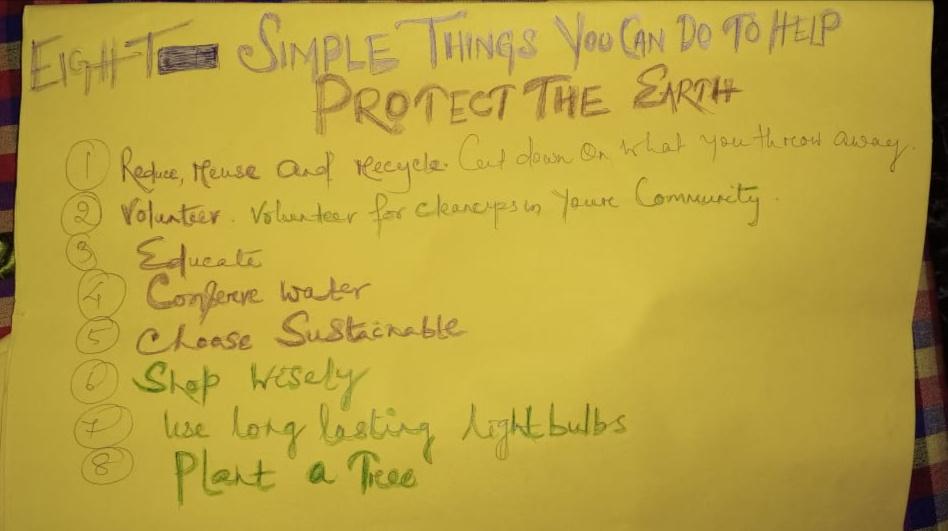 EIGHT SIMPLE THINGS YOU CAN DO TO HELP
PROTECT THE EARTH
1 Reduce, reuse and recycle. Cut down on what you throw away.
2 Volunteer. Volunteer for cleanups in Youre Community.
3 Educate
4 Conferve water
5 Choose Sustainable
6 Shop wisely
7 use long lasting lightbulbs
8 Plant a Tree